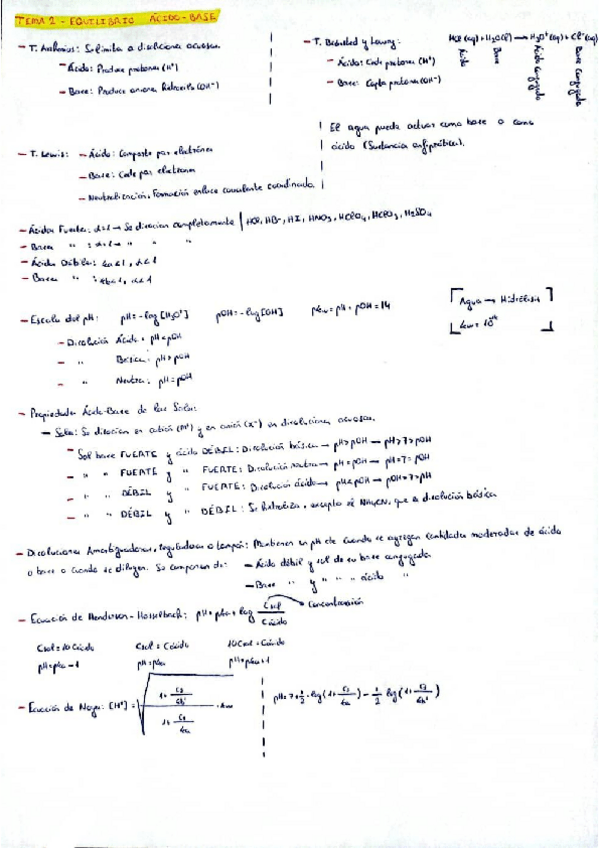 TEMA 2 - EQUILIBRIO ÁCIDO-BASE
- T. Arrhenius: Se limita a disoluciones acuosas
- Ácido: Produce protones (H⁺)
- Base: Produce aniones hidroxilo (OH⁻)
- T. Brönsted y Lowry:
- Ácido: Cede protones (H⁺)
- Base: Capta protones (OH⁻)
HCl (aq) + H₂O (l) → H₃O⁺ (aq) + Cl⁻ (aq)
Ácido Base Ácido conjugado Base conjugada
El agua puede actuar como base o como
ácido (Sustancia anfiprótica).
- T. Lewis: - Ácido: Comparte par electrónico
- Base: Cede par electrones
- Neutralización. Formación enlace covalente coordinado.
- Ácidos Fuerte: α=1 → Se disocian completamente | HCl, HBr, HI, HNO₃, HClO₄, HClO₃, H₂SO₄
- Base " : α=1 → " "
- Ácido Débil: Ka<1, α<1
- Base " : Kb<1, α<1
- Escala del pH: pH = -log [H₃O⁺] pOH = -log [OH] pKw = pH + pOH = 14
Agua → Hidrólisis
Kw = 10⁻¹⁴
- Disolución Ácida: pH<pOH
- " Básica: pH>pOH
- " Neutra: pH=pOH
- Propiedades Ácido-Base de las Sales:
- Sales: Se disocian en catión (M⁺) y en anión (X⁻) en disoluciones acuosas.
- Sal base FUERTE y ácido DÉBIL: Disolución básica → pH>pOH → pH>7>pOH
- " " FUERTE y " FUERTE: Disolución neutra → pH=pOH → pH=7=pOH
- " " DÉBIL y " FUERTE: Disolución ácida → pH<pOH → pOH>7>pH
- " " DÉBIL y " DÉBIL: Se hidroliza, excepto el NH₄CN, que da disolución básica
- Disoluciones Amortiguadoras, reguladoras o tampón: Mantienen un pH cte cuando se agregan cantidades moderadas de ácido
o base o cuando se diluyen. Se componen de: - Ácido débil y sal de su base conjugada
- Base " y " " " ácido "
- Ecuación de Henderson-Hasselbach: pH = pKa + log Csal / Cácido → Concentración
Csal = 10 Cácido Csal = Cácido 10 Csal = Cácido
pH = pKa - 1 pH = pKa pH = pKa + 1